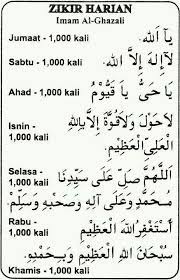 ZIKIR HARIAN
Imam Al-Ghazali
Jumaat - 1,000 kali يَا اَللّٰهُ.
Sabtu - 1,000 kali لَا إِلٰهَ إِلَّا اللّٰهُ.
Ahad - 1,000 kali يَا حَيُّ يَا قَيُّوْمُ
Isnin - 1,000 kali لَاحَوْلَ وَلَاقُوَّةَ إِلَّا بِاللّٰهِ
الْعَلِيِّ الْعَظِيْمِ.
Selasa - 1,000 kali اَللّٰهُمَّ صَلِّ عَلٰى سَيِّدِنَا
مُحَمَّدٍ وَعَلٰى آلِهِ وَصَحْبِهِ وَسَلِّمْ.
Rabu - 1,000 kali أَسْتَغْفِرُ اللّٰهَ الْعَظِيْمَ
سُبْحَانَ اللّٰهِ الْعَظِيْمِ وَبِحَمْدِهِ.
Khamis - 1,000 kali